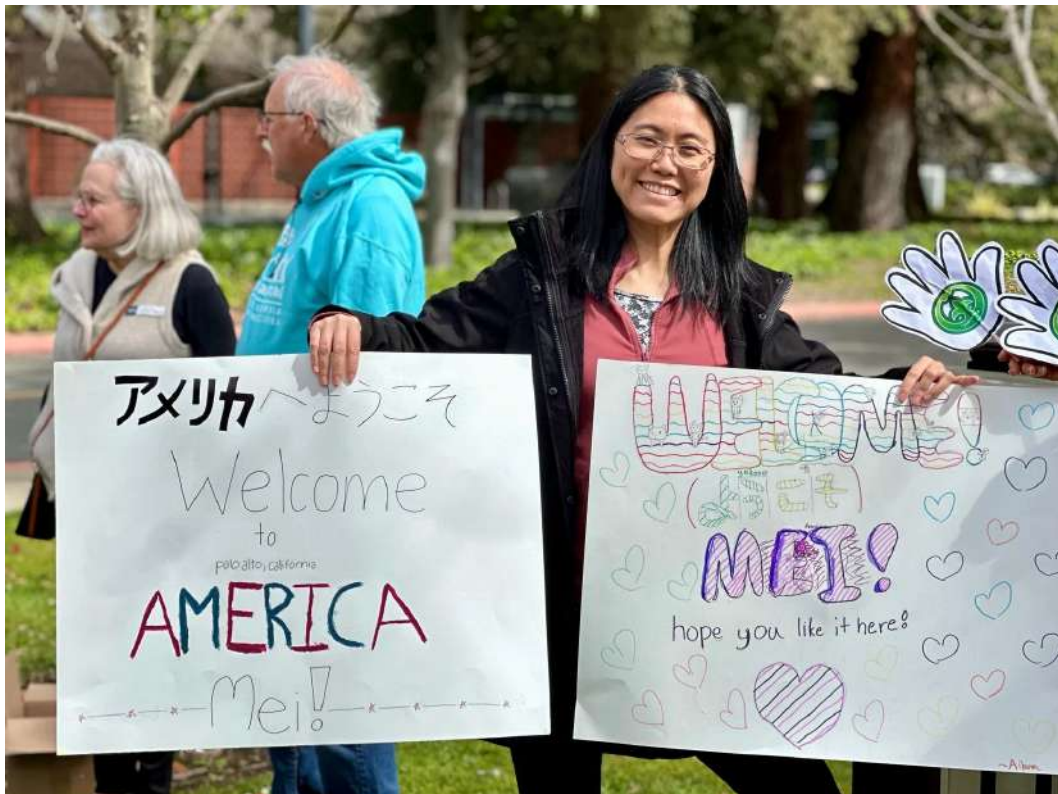 アメリカへようこそ
Welcome
to
palo alto, california
AMERICA
Mei!
WELCOME!
(ようこそ)
MEI!
hope you like it here!